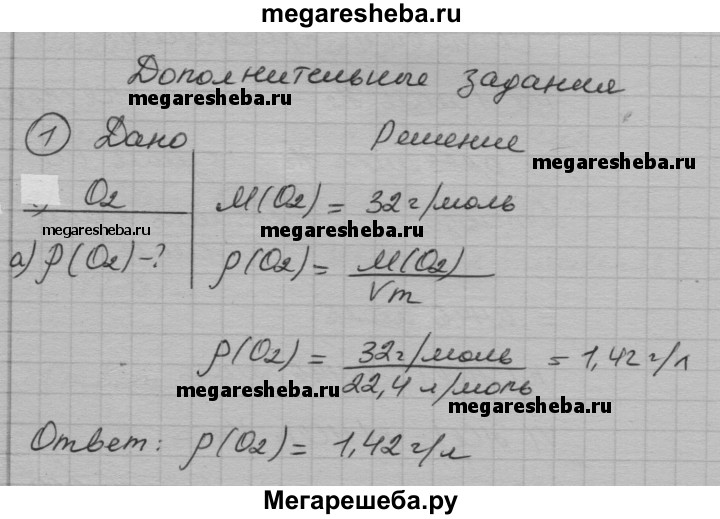 megaresheba.ru
Дополнительные задания
megaresheba.ru
1 Дано Решение
megaresheba.ru
O₂ M(O₂) = 32 г/моль
megaresheba.ru megaresheba.ru
а) ρ(O₂) - ? ρ(O₂) = M(O₂) / Vm
ρ(O₂) = 32 г/моль / 22,4 л/моль = 1,42 г/л
megaresheba.ru megaresheba.ru
Ответ: ρ(O₂) = 1,42 г/л
Мегарешеба.ру